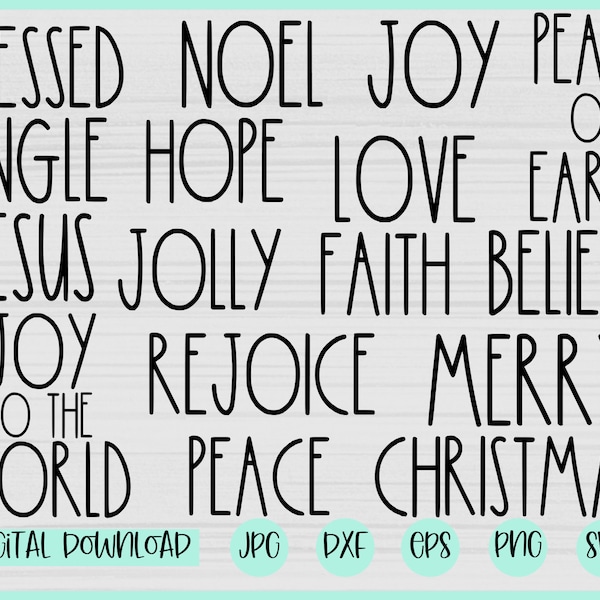 ESSED NOEL JOY PEA
O
NGLE HOPE LOVE EAR
ESUS JOLLY FAITH BELIE
JOY REJOICE MERRY
O THE
ORLD PEACE CHRISTMA
GITAL DOWNLOAD JPG DXF EPS PNG S